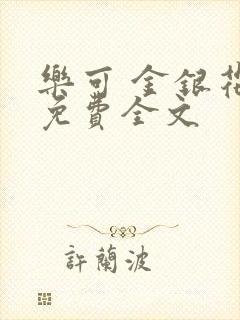 樂可 金銀花
免費全文
許蘭波